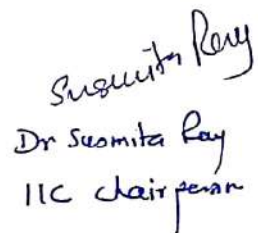 Susmita Ray
Dr Susmita Ray
IIC chairperson